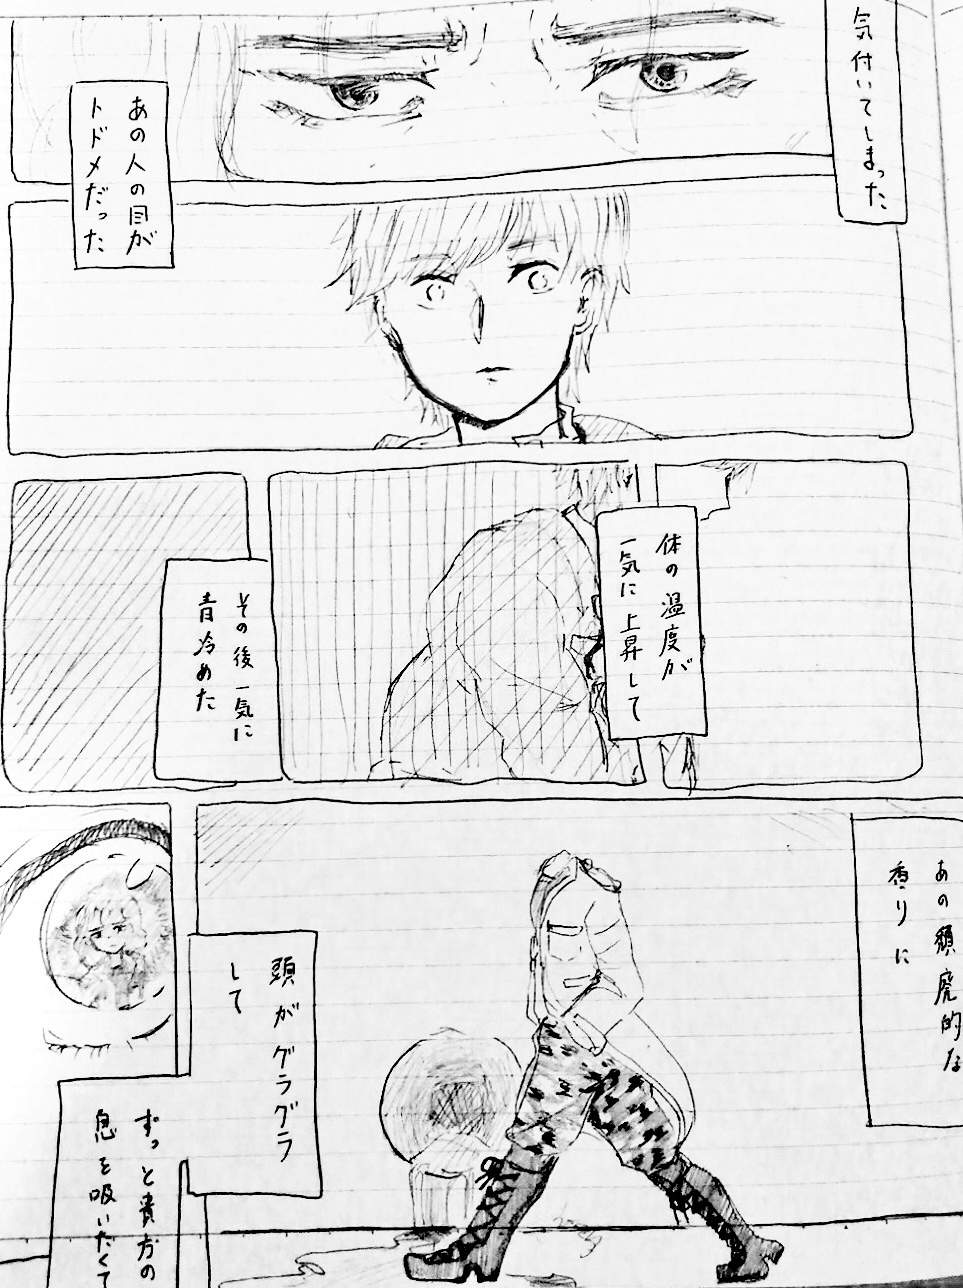 気付いてしまった
あの人の目が
トドメだった
体の温度が
一気に上昇して
その後一気に
青冷めた
あの頽廃的な
香りに
頭がグラグラ
して
ずっと貴方の
息を吸いたくて